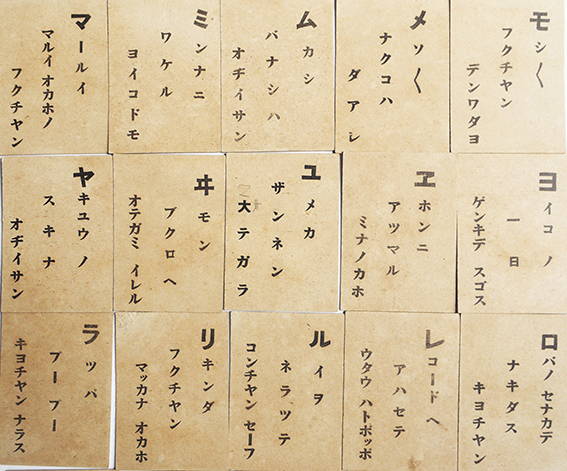 マールイ
マルイ オカホノ
フクチヤン
ミンナニ
ワケル
ヨイコドモ
ムカシ
バナシハ
オヂイサン
メソ〱
ナクコハ
ダアレ
モシ〱
フクチヤン
デンワダヨ
ヤキユウノ
スキナ
オヂイサン
ヰモン
ブクロヘ
オテガミ イレル
ユメカ
ザンネン
大テガラ
ヱホンニ
アツマル
ミナノカホ
ヨイコノ
一日
ゲンキデ スゴス
ラツパ
プープー
キヨチヤン ナラス
リキンダ
フクチヤン
マツカナ オカホ
ルイヲ
ネラツテ
コンチヤン セーフ
レコードヘ
アハセテ
ウタウ ハトポツポ
ロバノ セナカデ
ナキダス
キヨチヤン